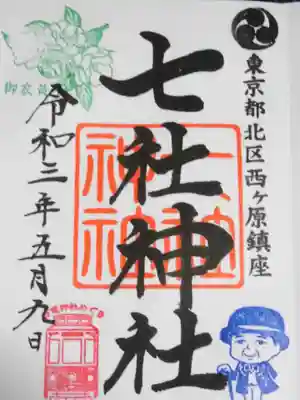 東京都北区西ヶ原鎮座
七社神社
七社神社
令和三年五月九日